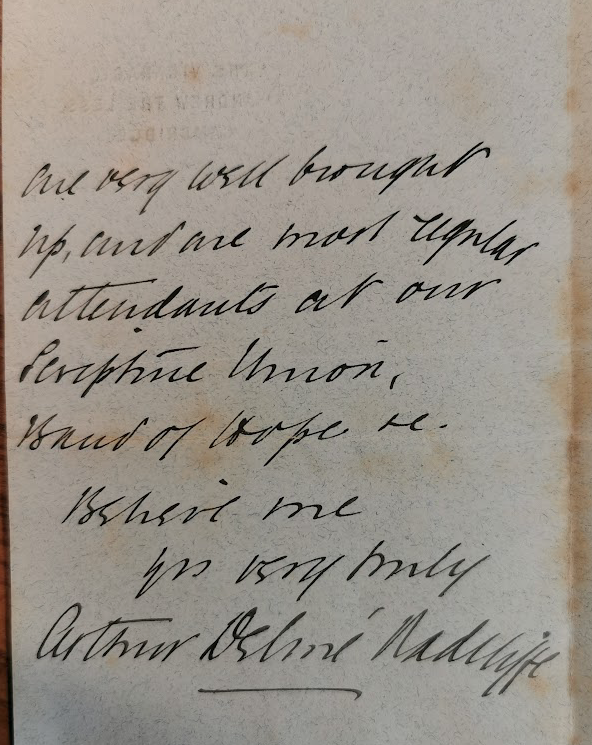 are very well brought
up, and are most regular
attendants at our
Scripture Union,
Band of Hope &c.
Believe me
yrs very truly
Arthur Delmé Radcliffe